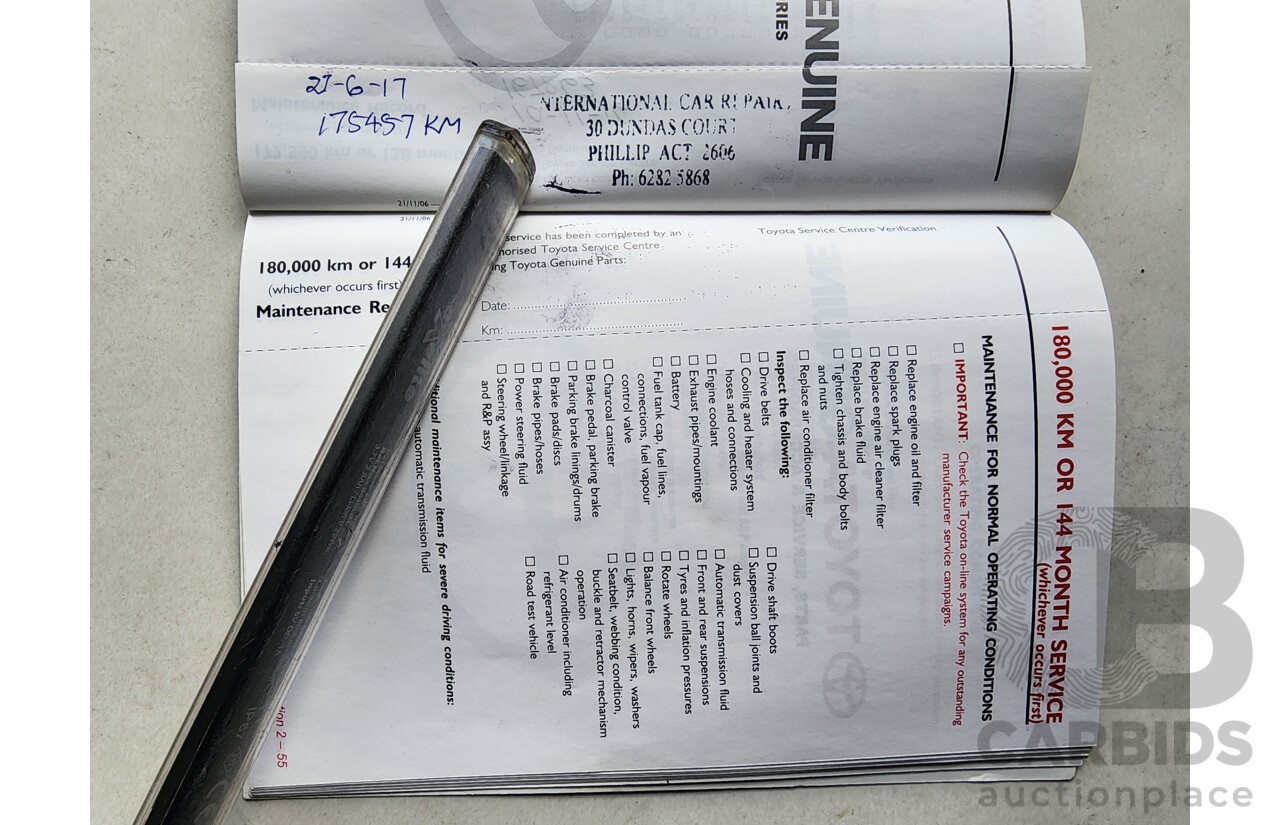 RIES
ENUINE
21-6-17
175457 KM
NTERNATIONAL CAR REPAIR,
30 DUNDAS COURT
PHILLIP ACT 2606
Ph: 6282 5868
21/11/06
21/11/06
180,000 km or 144
(whichever occurs first)
Maintenance Re
service has been completed by an
horised Toyota Service Centre
ing Toyota Genuine Parts:
Date:
Km:
Toyota Service Centre Verification
180,000 KM OR 144 MONTH SERVICE
(whichever occurs first)
MAINTENANCE FOR NORMAL OPERATING CONDITIONS
IMPORTANT: Check the Toyota on-line system for any outstanding
manufacturer service campaigns.
Replace engine oil and filter
Replace spark plugs
Replace engine air cleaner filter
Replace brake fluid
Tighten chassis and body bolts
and nuts
Replace air conditioner filter
Inspect the following:
Drive belts
Cooling and heater system
hoses and connections
Engine coolant
Exhaust pipes/mountings
Battery
Fuel tank cap, fuel lines,
connections, fuel vapour
control valve
Charcoal canister
Brake pedal, parking brake
Parking brake linings/drums
Brake pads/discs
Brake pipes/hoses
Power steering fluid
Steering wheel/linkage
and R&P assy
Drive shaft boots
Suspension ball joints and
dust covers
Automatic transmission fluid
Front and rear suspensions
Tyres and inflation pressures
Rotate wheels
Balance front wheels
Lights, horns, wipers, washers
Seatbelt, webbing condition,
buckle and retractor mechanism
operation
Air conditioner including
refrigerant level
Road test vehicle
itional maintenance items for severe driving conditions:
automatic transmission fluid
ion 2 – 55
CARBIDS
auctionplace